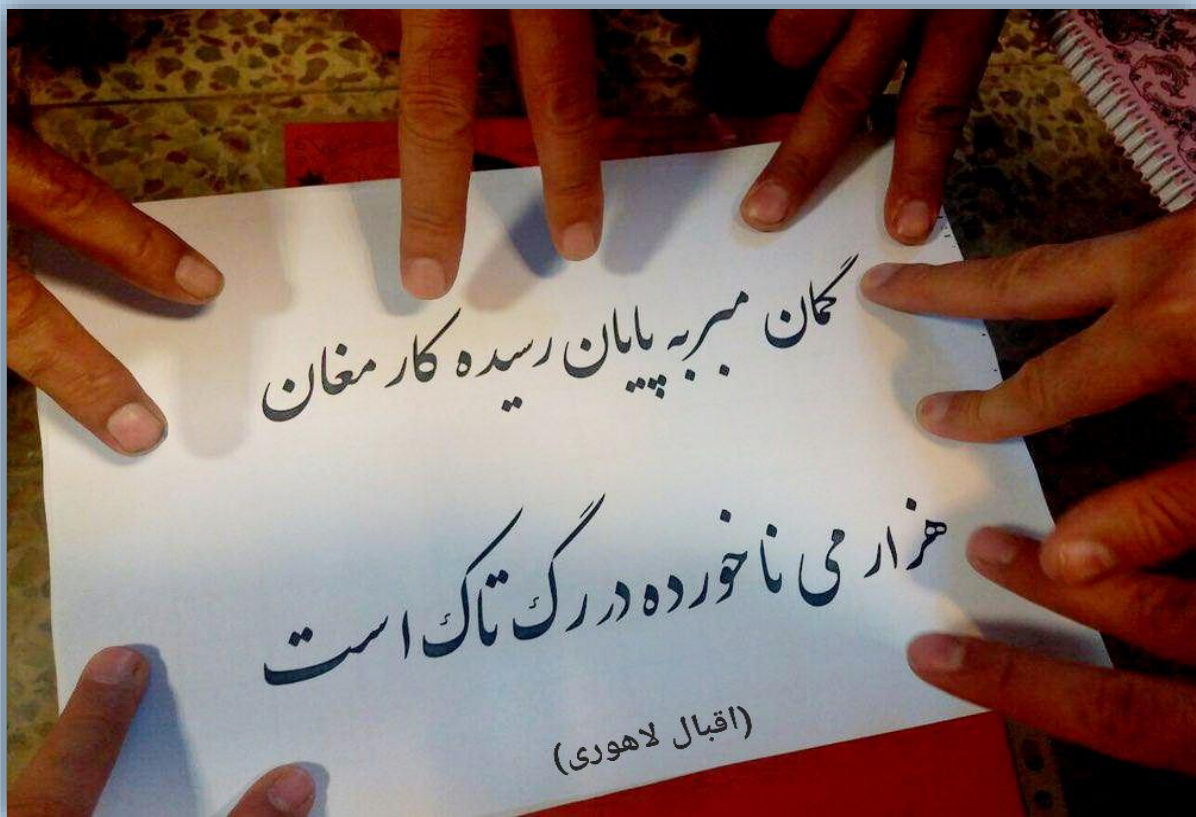 گمان مبر به پایان رسیده کار مغان
هزار می ناخورده در رگ تاک است
(اقبال لاهوری)